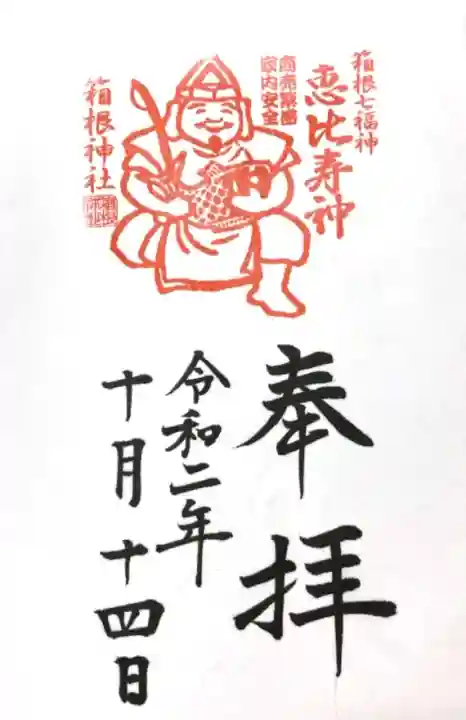 箱根七福神
恵比寿神
商売繁盛
家内安全
箱根神社
奉拝
令和二年
十月十四日